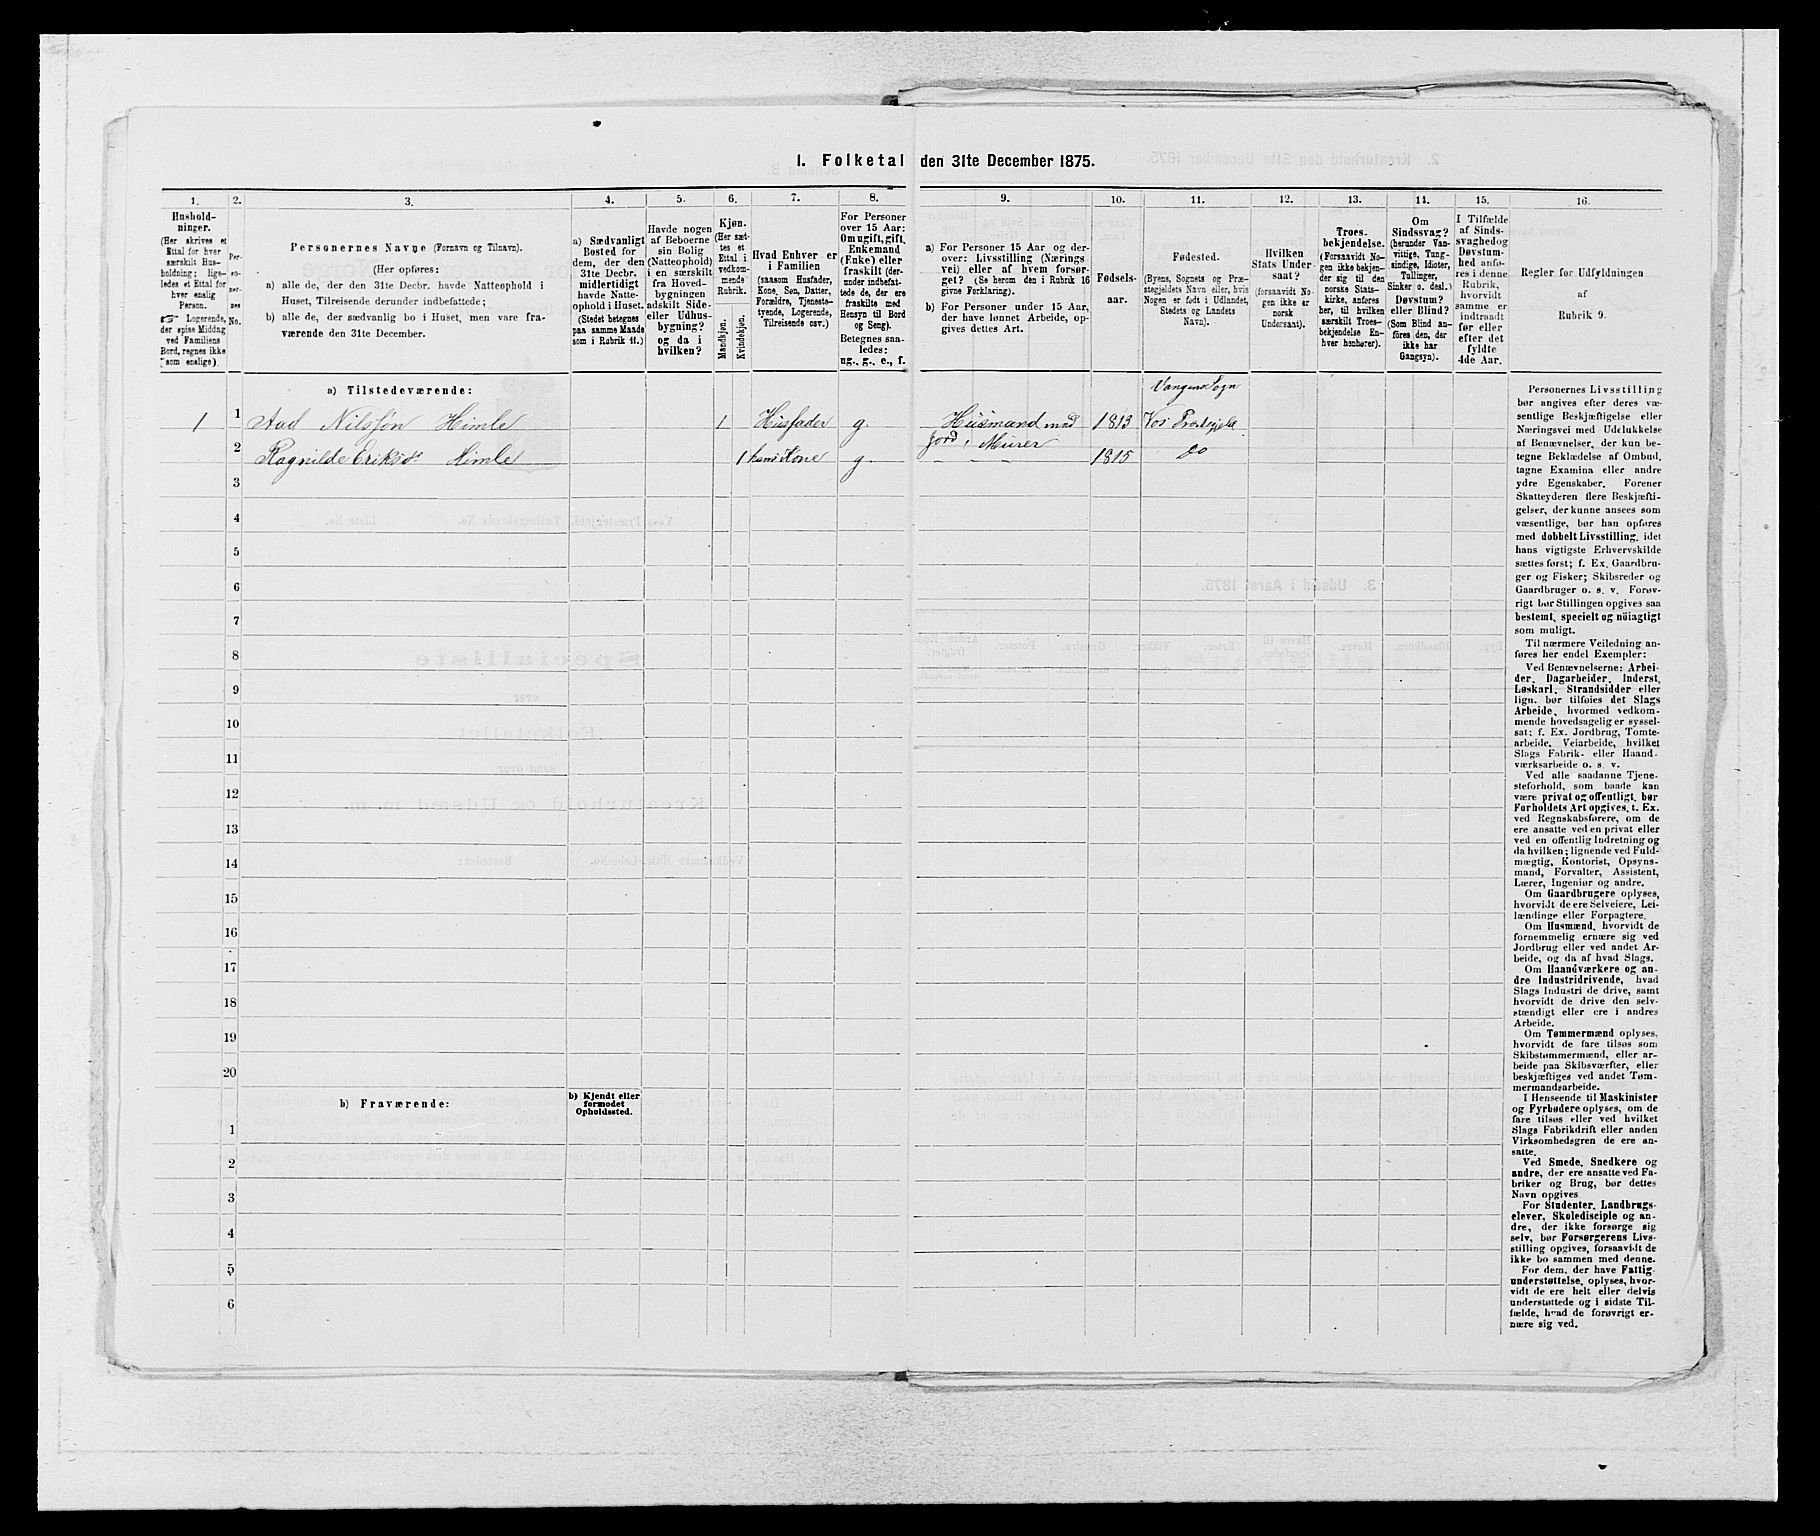 1. Folketal den 31te December 1875.
1.
Hushold-
ninger.
(Her skrives et
Ettal for hver
særskilt Hus-
holdning; lige-
ledes et Ettal for
hver enslig
Person.
☞ Logerende,
der spise Middag
ved Familiens
Bord, regnes ikke
som enslige).
2.
Per-
so-
ner-
nes
No.
3.
Personernes Navne (Fornavn og Tilnavn).
(Her opføres:
a) alle de, der den 31te Decbr. havde Natteophold i
Huset, Tilreisende derunder indbefattede;
b) alle de, der sædvanlig bo i Huset, men vare fra-
værende den 31te December.
4.
a) Sædvanligt
Bosted for
dem, der den
31te Decbr.
midlertidigt
havde Natte-
ophold i Huset.
(Stedet betegnes
paa samme Maade
som i Rubrik 11.)
5.
Havde nogen
af Beboerne
sin Bolig
(Natteophold)
i en særskilt
fra Hoved-
bygningen
adskilt Side-
eller Udhus-
bygning?
og da i
hvilken?
6.
Kjøn.
(Her sæt-
tes et
Ettal i
vedkom-
mende
Rubrik.
Mandkjøn.
Kvindekjøn.
7.
Hvad Enhver er
i Familien
(saasom Husfader,
Kone, Søn, Datter,
Forældre, Tjeneste-
tyende, Logerende,
Tilreisende osv.)
8.
For Personer
over 15 Aar:
Om ugift, gift,
Enkemand
(Enke) eller
fraskilt (der-
under indbefat-
tede de, der ere
fraskilte med
Hensyn til Bord
og Seng).
Betegnes saa-
ledes:
ug., g., e., f.
9.
a) For Personer 15 Aar og der-
over: Livsstilling (Nærings-
vei) eller af hvem forsør-
get? (Se herom den i Rubrik 16
givne Forklaring).
b) For Personer under 15 Aar,
der have lønnet Arbeide, op-
gives dettes Art.
10.
Fødsels-
aar.
11.
Fødested.
(Byens, Sognets og Præ-
stegjeldets Navn eller, hvis
Nogen er født i Udlandet,
Stedets og Landets
Navn).
12.
Hvilken
Stats Under-
saat?
(forsaavidt No-
gen ikke er
norsk
Undersaat).
13.
Troes-
bekjendelse.
(Forsaavidt No-
gen ikke bekjen-
der sig til den
norske Stats-
kirke, anføres
her, til hvilken
særskilt Troes-
bekjendelse En-
hver henhører).
14.
Om
Sindssvag?
(herunder Van-
vittige, Tung-
sindige, Idioter,
Tullinger,
Sinker o. desl.)
Døvstum?
eller Blind?
(Som Blind an-
føres den, der
ikke har
Gangsyn).
15.
I Tilfælde
af Sinds-
svaghed og
Døvstum-
hed anfø-
res i denne
Rubrik,
hvorvidt
samme er
indtraadt
før eller
efter det
fyldte
4de Aar.
16.
Regler for Udfyldningen
af
Rubrik 9.
a) Tilstedeværende:
Vangens Sogn
1 1 Aad Nilssøn Himle 1 Husfader g. Husmand med 1813 Vos Prestegjeld
jord, Murer
2 Ragnilde Eriksdr Himle 1 hans Kone g. — — — 1815 do
3
4
5
6
7
8
9
10
11
12
13
14
15
16
17
18
19
20
b) Fraværende:
b) Kjendt eller
formodet
Opholdssted.
1
2
3
4
5
6
Personernes Livsstilling
bør angives efter deres væ-
sentlige Beskjæftigelse eller
Næringsvei med Udelukkelse
af Benævnelser, der kun be-
tegne Beklædelse af Ombud,
tagne Examina eller andre
ydre Egenskaber. Forener
Skatteyderen flere Beskjæfti-
gelser, der kunne ansees som
væsentlige, bør han opføres
med dobbelt Livsstilling, idet
hans vigtigste Erhvervskilde
sættes først; f. Ex. Gaardbru-
ger og Fisker; Skibsreder og
Gaardbruger o. s. v. Forøv-
rigt bør Stillingen opgives saa
bestemt, specielt og nöiagtigt
som muligt.
Til nærmere Veiledning an-
føres her endel Exempler:
Ved Benævnelserne: Arbei-
der, Dagarbeider, Inderst,
Løskarl, Strandsidder eller
lign. bør tilføies det Slags
Arbeide, hvormed vedkom-
mende hovedsagelig er syssel-
sat; f. Ex. Jordbrug, Tomte-
arbeide, Veiarbeide, hvilket
Slags Fabrik- eller Haand-
værksarbeide o. s. v.
Ved alle saadanne Tjene-
steforhold, som baade kan
være privat og offentligt, bør
Forholdets Art opgives, t. Ex.
ved Regnskabsførere, om de
ere ansatte ved en privat eller
ved en offentlig Indretning og
da hvilken; lignende ved Fuld-
mægtig, Kontorist, Opsyns-
mand, Forvalter, Assistent,
Lærer, Ingeniør og andre.
Om Gaardbrugere oplyses,
hvorvidt de ere Selveiere, Lei-
lændinge eller Forpagtere.
Om Husmænd, hvorvidt de
fornemmelig ernære sig ved
Jordbrug eller ved andet Ar-
beide, og da af hvad Slags.
Om Haandværkere og an-
dre Industridrivende, hvad
Slags Industri de drive, samt
hvorvidt de drive den selv-
stændigt eller ere i andres
Arbeide.
Om Tømmermænd oplyses,
hvorvidt de fare tilsøs som
Skibstømmermænd, eller ar-
beide paa Skibsværfter, eller
beskjæftiges ved andet Tøm-
mermandsarbeide.
I Henseende til Maskinister
og Fyrbødere oplyses, om de
fare tilsøs eller ved hvilket
Slags Fabrikdrift eller anden
Virksomhedsgren de ere an-
satte.
Ved Smede, Snedkere og
andre, der ere ansatte ved Fa-
briker og Brug, bør dettes
Navn opgives
For Studenter, Landbrugs-
elever, Skoledisciple og an-
dre, der ikke forsørge sig
selv, bør Forsørgerens Livs-
stilling opgives, forsaavidt de
ikke bo sammen med denne.
For dem, der have Fattig-
understøttelse, oplyses, hvor-
vidt de ere helt eller delvis
understøttede og i sidste Til-
fælde, hvad de forøvrigt er-
nære sig ved.